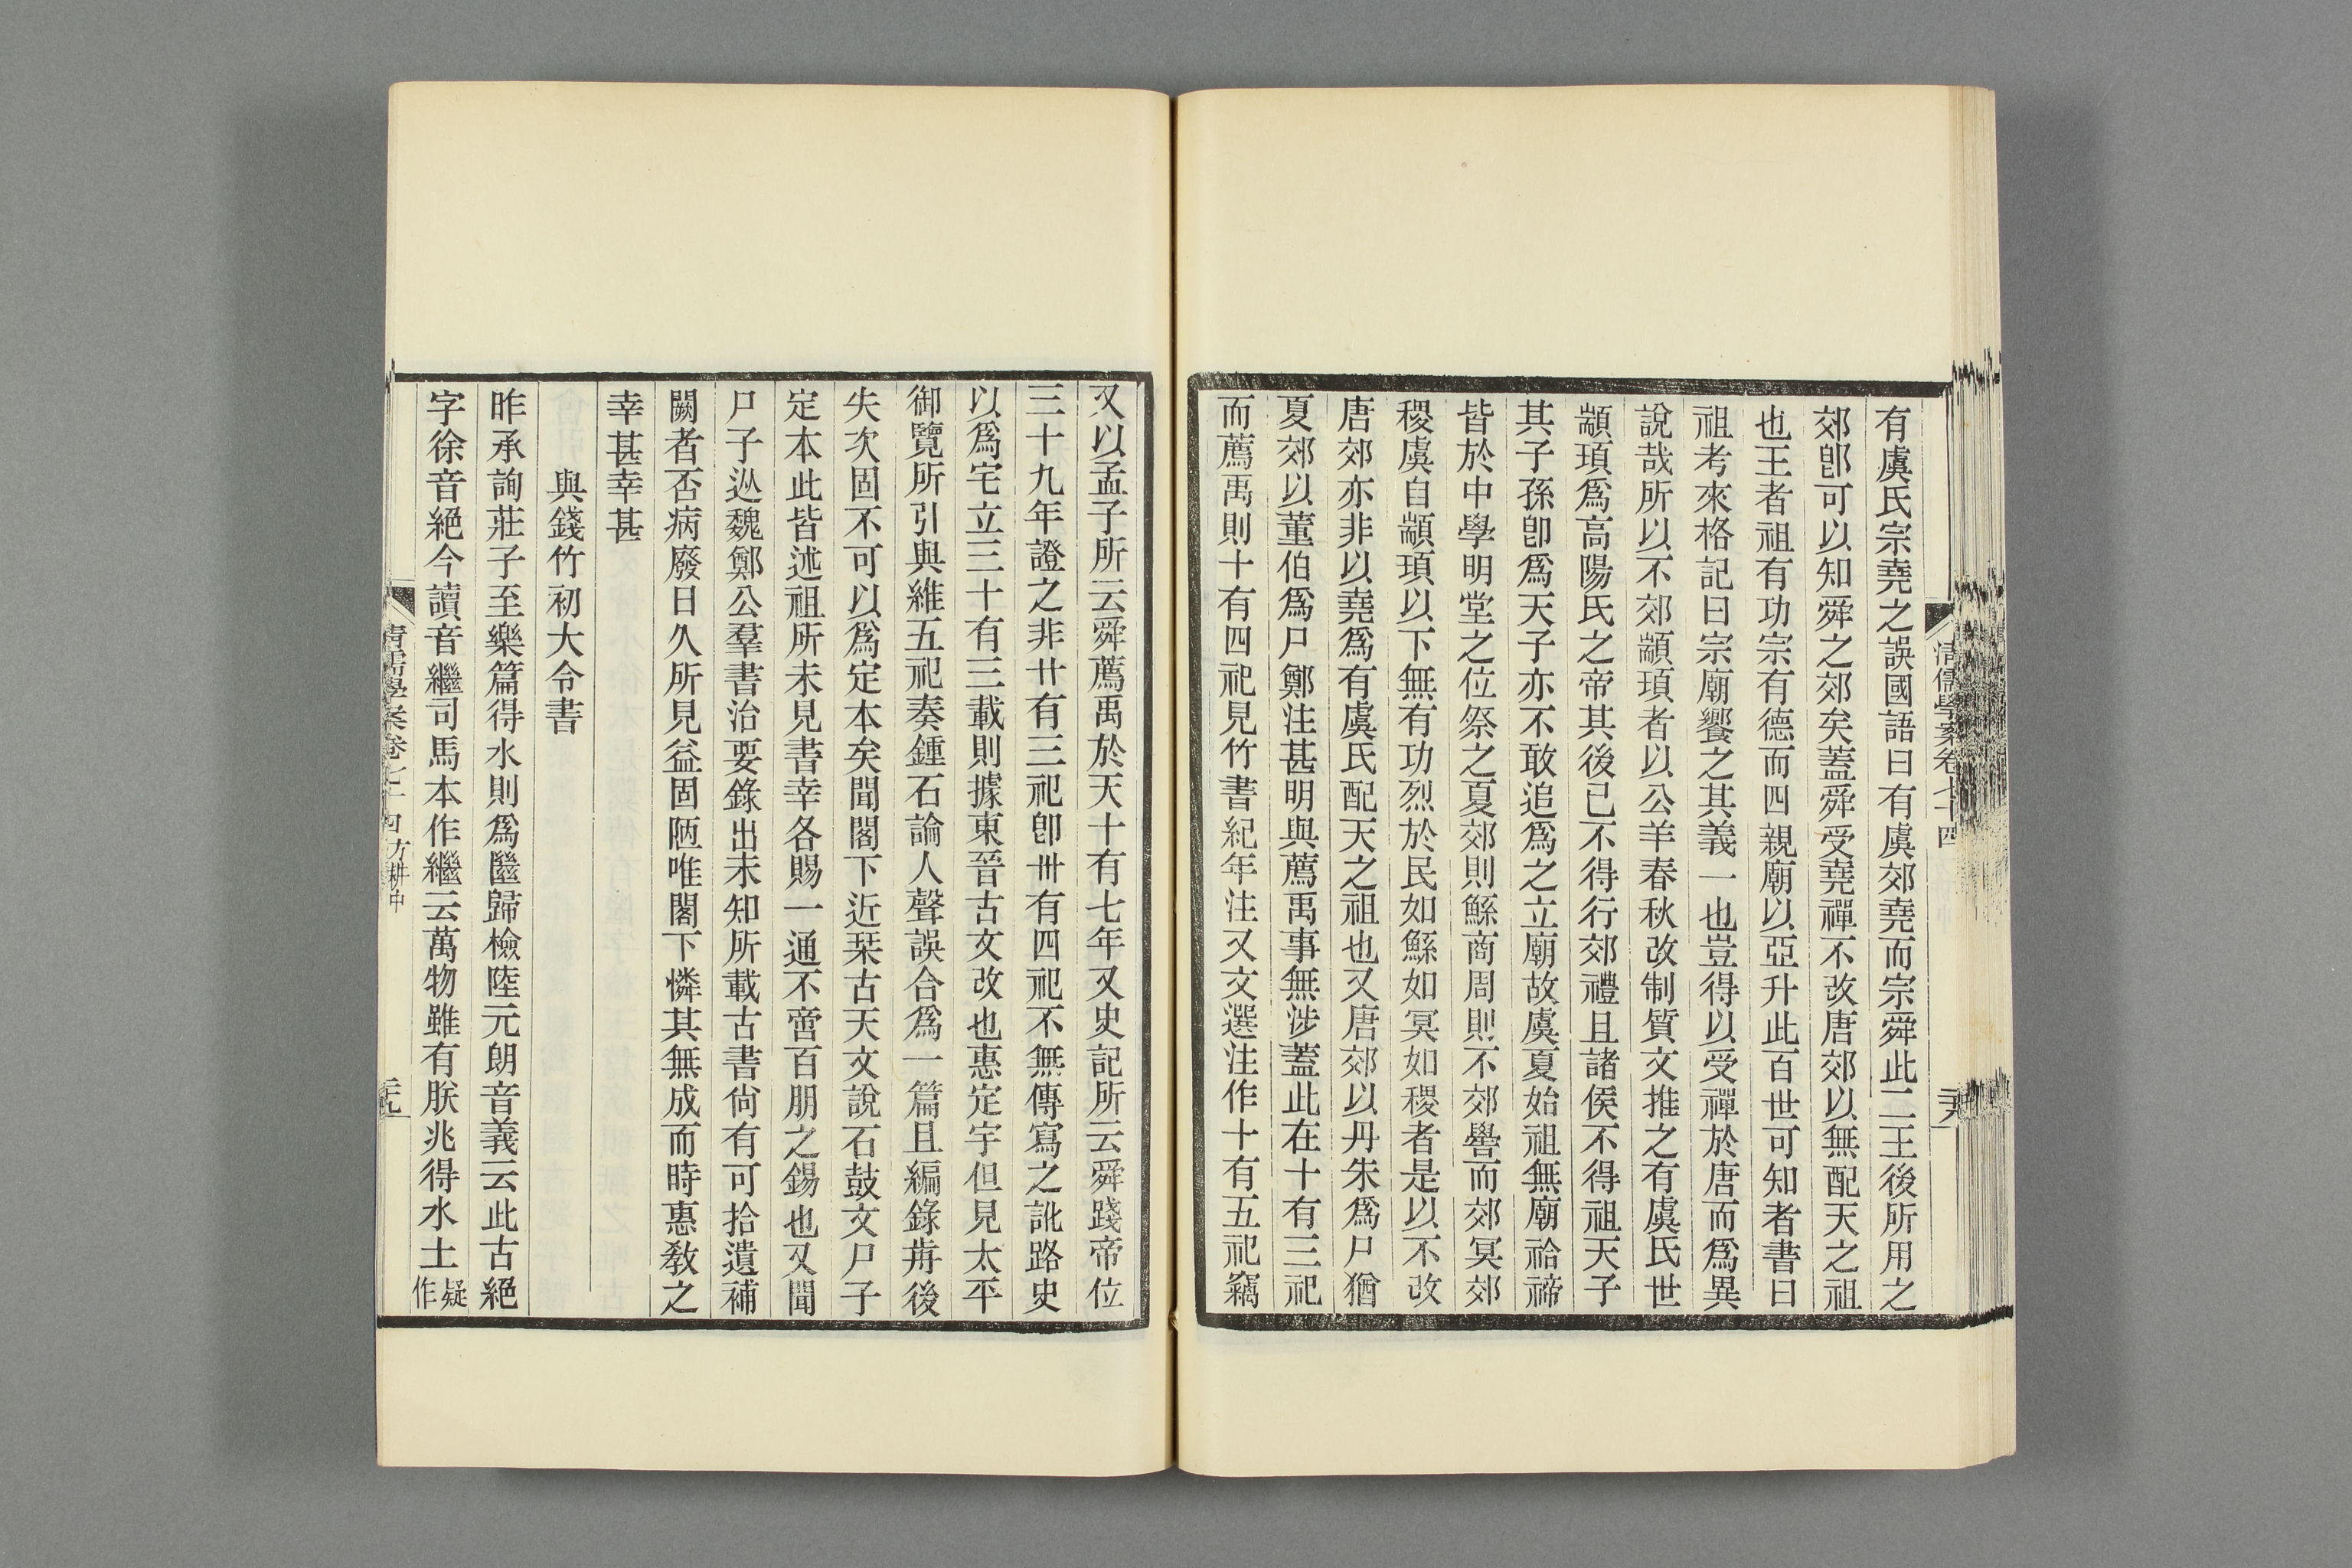 有虞氏宗堯之誤國語曰有虞郊堯而宗舜此二王後所用之
郊卽可以知舜之郊矣蓋舜受堯禪不改唐郊以無配天之祖
也王者祖有功宗有德而四親廟以亞升此百世可知者書曰
祖考來格記曰宗廟饗之其義一也豈得以受禪於唐而爲異
說哉所以不郊顓頊者以公羊春秋改制質文推之有虞氏世
顓頊爲高陽氏之帝其後已不得行郊禮且諸侯不得祖天子
其子孫卽爲天子亦不敢追爲之立廟故虞夏始祖無廟祫禘
皆於中學明堂之位祭之夏郊則鯀商周則不郊嚳而郊冥郊
稷虞自顓頊以下無有功烈於民如鯀如冥如稷者是以不改
唐郊亦非以堯爲有虞氏配天之祖也又唐郊以丹朱爲尸猶
夏郊以董伯爲尸鄭注甚明與薦禹事無涉蓋此在十有三祀
而薦禹則十有四祀見竹書紀年注又文選注作十有五祀竊
清儒學案卷七十四
又以孟子所云舜薦禹於天十有七年又史記所云舜踐帝位
三十九年證之非廿有三祀卽卅有四祀不無傳寫之訛路史
以爲宅立三十有三載則據東晉古文改也惠定宇但見太平
御覽所引與維五祀奏鍾石論人聲誤合爲一篇且編錄歬後
失次固不可以爲定本矣聞閣下近栞古天文說石鼓文尸子
定本此皆述祖所未見書幸各賜一通不啻百朋之錫也又聞
尸子迯魏鄭公羣書治要錄出未知所載古書尙有可拾遺補
闕者否病廢日久所見益固陋唯閣下憐其無成而時惠敎之
幸甚幸甚
與錢竹初大令書
昨承詢莊子至樂篇得水則爲㡭歸檢陸元朗音義云此古絕
字徐音絕今讀音繼司馬本作繼云萬物雖有朕兆得水土疑作
清儒學案卷七十四方耕中